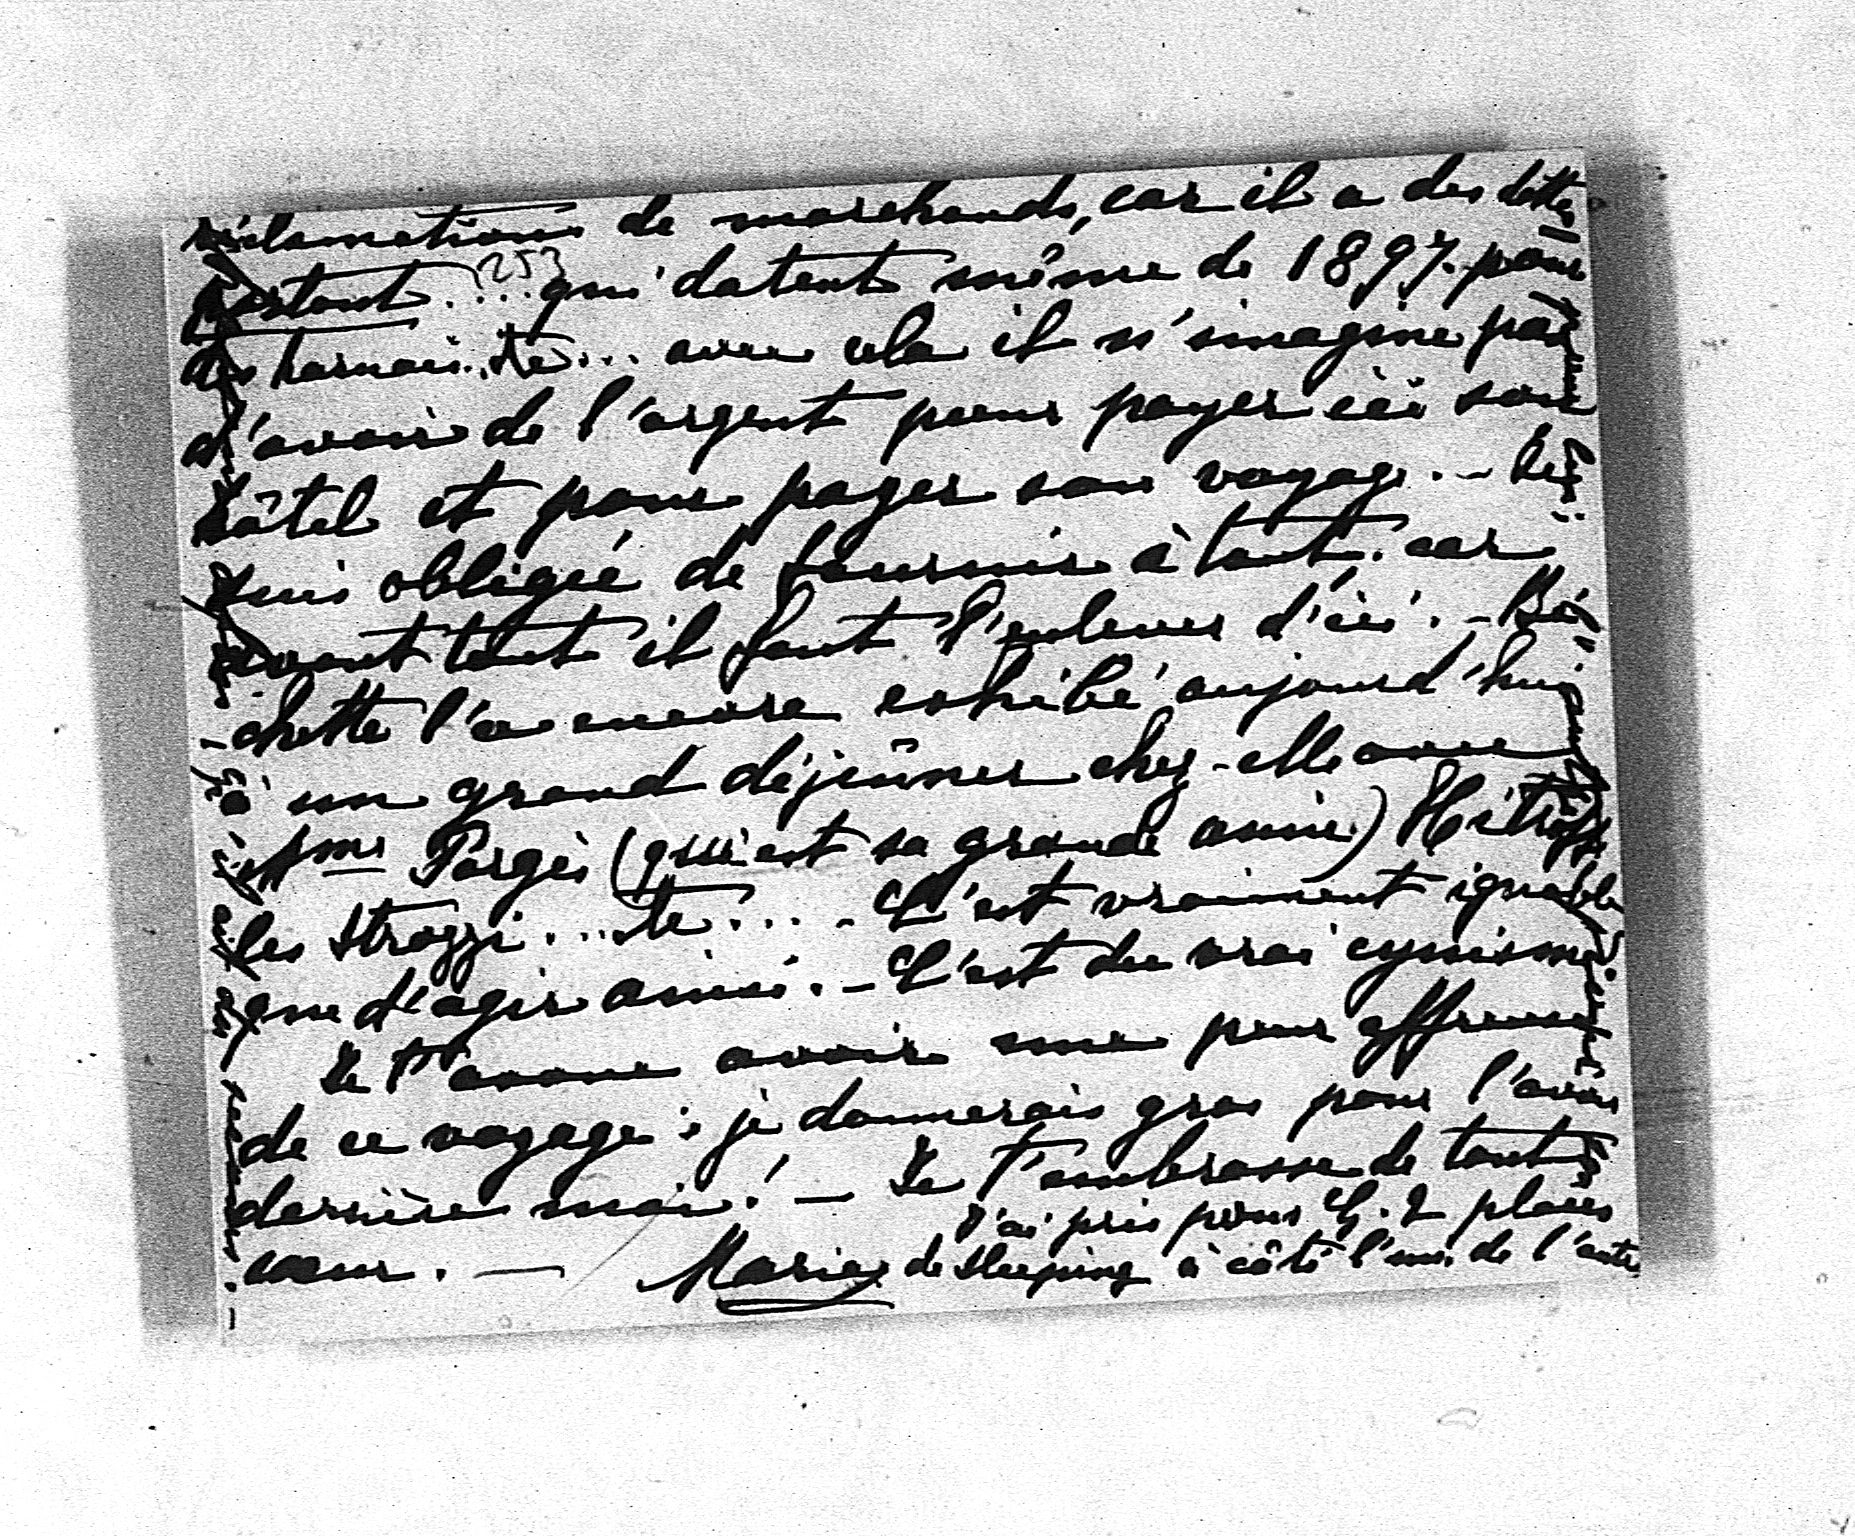 réclamations de marchands, car il a des dettes
partout .... qui datent même de 1897. pour
253
des harnais.. etc... avec cela il n'imagine pas
d'avoir de l'argent pour payer ici son
hôtel et pour payer son voyage. - Je
suis obligée de fournir à tout. car
avant tout il faut l'enlever d'ici. - Bi-
chette l'a encore exhibé aujourd'hui
à un grand déjeûner chez-elle avec
Mme Porgès (qui est sa grande amie)
les Strozzi... etc.... - C'est vraiment ignoble
que d'agir ainsi. - C'est du vrai cynisme
Je t'avoue avoir une peur affreuse
de ce voyage: je donnerais gros pour l'avoir
derrière moi! - Je t'embrasse de tout
coeur. - Marie
J'ai pris pour G. 2 places
de sleeping à côté l'une de l'autre